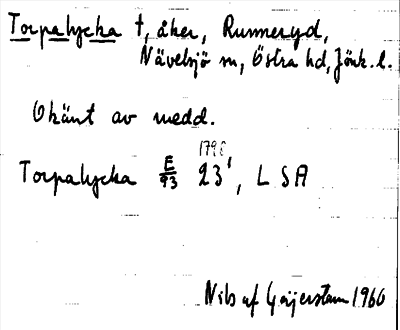 Torpalycka †, åker, Runneryd,
Nävelsjö sn, Östra hd, Jönk. l.
Okänt av medd.
1798
Torpalycka E/93 23', LSA
Nils af Geijerstam 1960